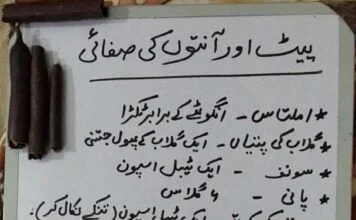 پیٹ اور آنتوں کی صفائی
* املتاس - انگوٹھے کے برابر ٹکڑا
* گلاب کی پتیاں - ایک گلاب کے پھول جتنی
* سونف - ایک ٹیبل اسپون
* پانی - ۶ گلاس
ایک ٹیبل اسپون (تنکے نکال کر)